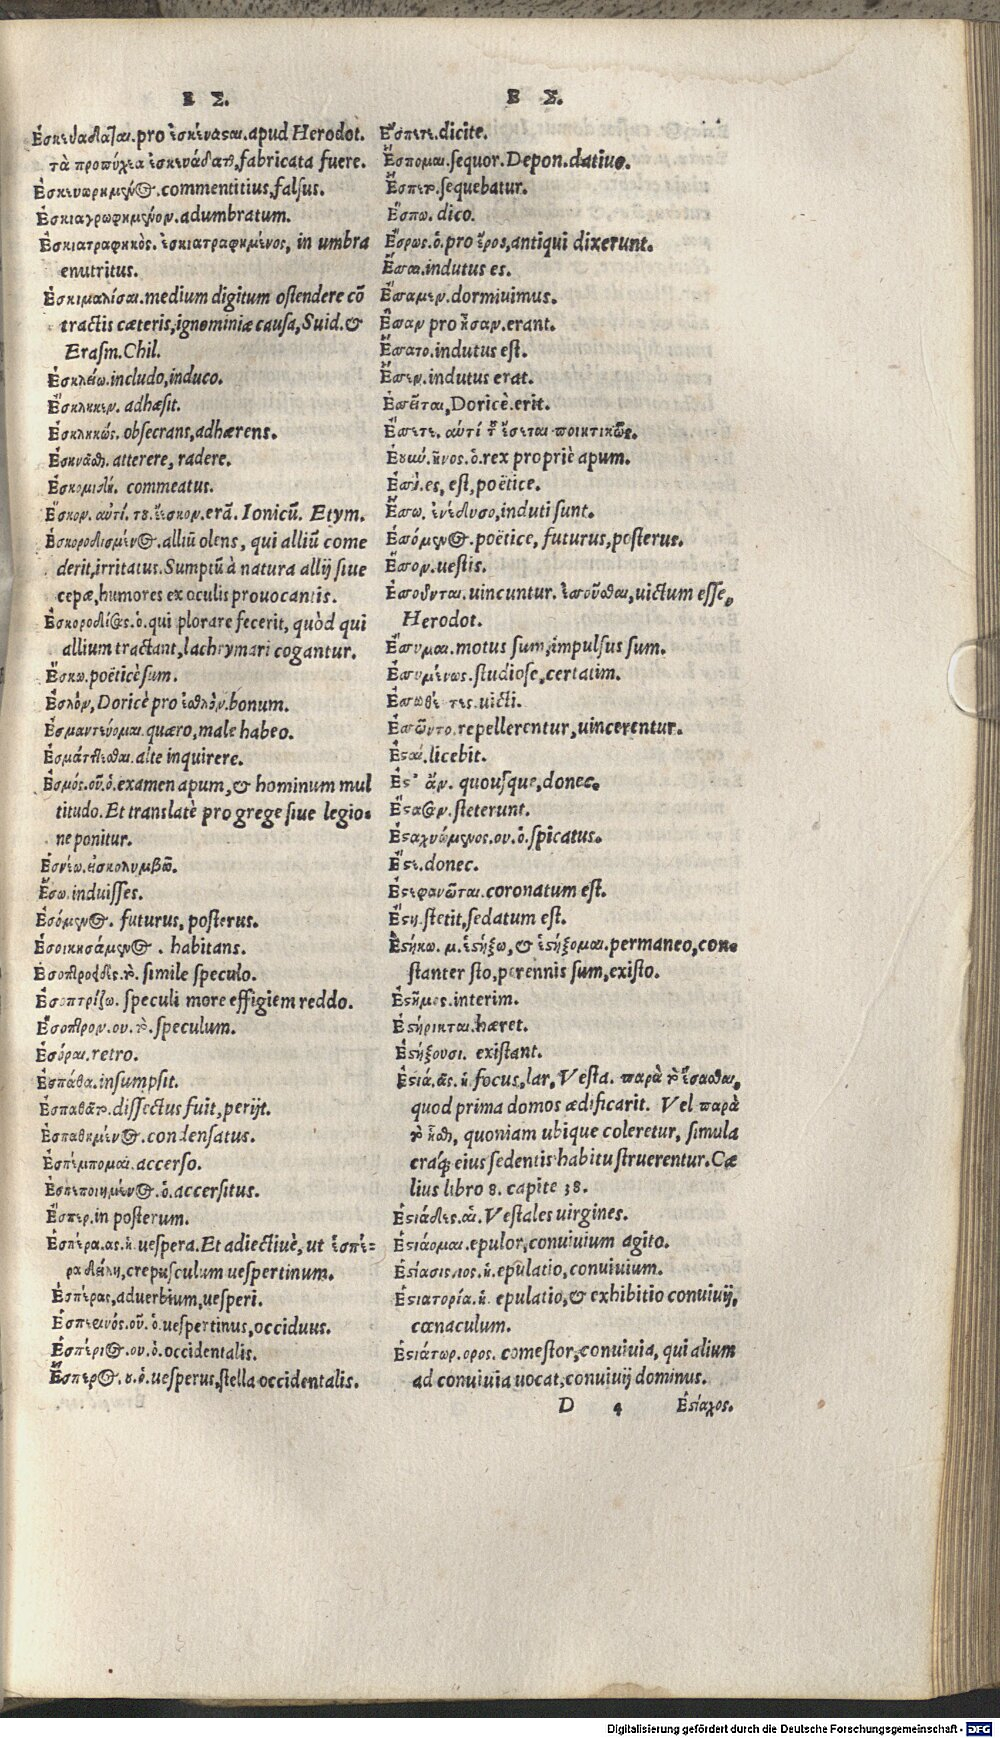 Ε Σ.
Ἐσκευάδαται. pro ἐσκεύασαι. apud Herodot.
τὰ προπύλαια ἐσκευάδατο, fabricata fuere.
Ἐσκευωρημένος. commentitius, falsus.
Ἐσκιαγρωφημένον. adumbratum.
Ἐσκιατραφηκὸς. ἐσκιατραφημένος, in umbra
enutritus.
Ἐσκιμαλίσαι. medium digitum ostendere cõ
tractis cæteris, ignominiæ causa, Suid. &
Erasm. Chil.
Ἐσκλείω. includo, induco.
Ἔσκληκεν. adhæsit.
Ἐσκληκώς. obsecrans, adhærens.
Ἐσκνᾶσθ. atterere, radere.
Ἐσκομιδὴ. commeatus.
Ἔσκον. αὐτί. τοῦ. ἔισκον. erã. Ionicũ. Etym.
Ἐσκοροδισμένος. alliũ olens, qui alliũ come
derit, irritatus. Sumptũ à natura allij siue
cepæ, humores ex oculis prouocantis.
Ἐσκοροδίας. ὁ. qui plorare fecerit, quòd qui
allium tractant, lachrymari coguntur.
Ἔσκω. poëticè sum.
Ἐσλὸν, Doricè pro ἐσθλὸν. bonum.
Ἐσμαντεύομαι. quæro, male habeo.
Ἐσμάττεσθαι. alte inquirere.
Ἐσμός. οῦ. ὁ. examen apum, & hominum mul
titudo. Et translatè pro grege siue legio-
ne ponitur.
Ἐσνέω. εἰσκολυμβῶ.
Ἔσω. induisses.
Ἐσόμενος. futurus, posterus.
Ἐσοικησάμενος. habitans.
Ἐσοπτροειδὲς. τὸ. simile speculo.
Ἐσοπτρίζω. speculi more effigiem reddo.
Ἔσοπτρον. ου. τὸ. speculum.
Ἐσόραι. retro.
Ἐσπάθα. insumpsit.
Ἐσπαθᾶτο. dissectus fuit, perijt.
Ἐσπαθημένος. condensatus.
Ἐσπέμπομαι. accerso.
Ἐσπεποιημένος. ὁ. accersitus.
Ἔσπερ. in posterum.
Ἑσπέρα. ας. ἡ. uespera. Et adiectiuè, ut ἑσπέ-
ρα δείλη, crepusculum uespertinum.
Ἑσπέρας, aduerbium, uesperi.
Ἑσπεινός. οῦ. ὁ. uespertinus, occiduus.
Ἑσπέριος. ου. ὁ. occidentalis.
Ἕσπερος. ου. ὁ. uesperus, stella occidentalis.
Ε Σ.
Ἔσπετε. dicite.
Ἕσπομαι. sequor. Depon. datiuo.
Ἕσπετο. sequebatur.
Ἔσπω. dico.
Ἔσρως. ὁ. pro ἔρος, antiqui dixerunt.
Ἕσσαι. indutus es.
Ἔσσαμεν. dormiuimus.
Ἔσσαν pro ἦσαν. erant.
Ἕσσατο. indutus est.
Ἕσσεν. indutus erat.
Ἐσσεῖται, Doricè. erit.
Ἔσσετε. αὐτί τοῦ ἔσεται ποιητικῶς.
Ἐσσὴν. ῆνος. ὁ. rex propriè apum.
Ἐσσὶ. es, est, poëtice.
Ἕσσω. ἐνέδυσο, induti sunt.
Ἐσσόμενος. poëtice, futurus, posterus.
Ἔσσον. uestis.
Ἐσσοῦνται. uincuntur. ἑσσοῦσθαι, uictum esse,
Herodot.
Ἔσσυμαι. motus sum, impulsus sum.
Ἐσσυμένως. studiose, certatim.
Ἑσσωθέντες. uicti.
Ἑσσῶντο. repellerentur, uincerentur.
Ἐξαι. licebit.
Ἐς' ἄν. quousque, donec.
Ἔσταν. steterunt.
Ἐσταχυώμενος. ου. ὁ. spicatus.
Ἔστε. donec.
Ἐστεφανῶται. coronatum est.
Ἔστη. stetit, sedatum est.
Ἑστήκω. μ. ἑστήξω, & ἑστήξομαι. permaneo, con-
stanter sto, perennis sum, existo.
Ἐστῆμος. interim.
Ἐστήρικται. hæret.
Ἑστήξουσι. existant.
Ἑστία. ας. ἡ. focus, lar, Vesta. παρὰ τὸ ἕσασθαι,
quod prima domos ædificarit. Vel παρὰ
τὸ ἧσθ, quoniam ubique coleretur, simula
craq́ue eius sedentis habitu struerentur. Cæ
lius libro 8. capite 38.
Ἑστιάδες. αἱ. Vestales uirgines.
Ἑστιάομαι. epulor, conuiuium agito.
Ἑστίασις. εως. ἡ. epulatio, conuiuium.
Ἑστιατορία. ἡ. epulatio, & exhibitio conuiuij,
cœnaculum.
Ἑστιάτωρ. ορος. comestor, conuiuia, qui alium
ad conuiuia uocat, conuiuij dominus.
D 4 Ἑσίαχος.
Digitalisierung gefördert durch die Deutsche Forschungsgemeinschaft - DFG